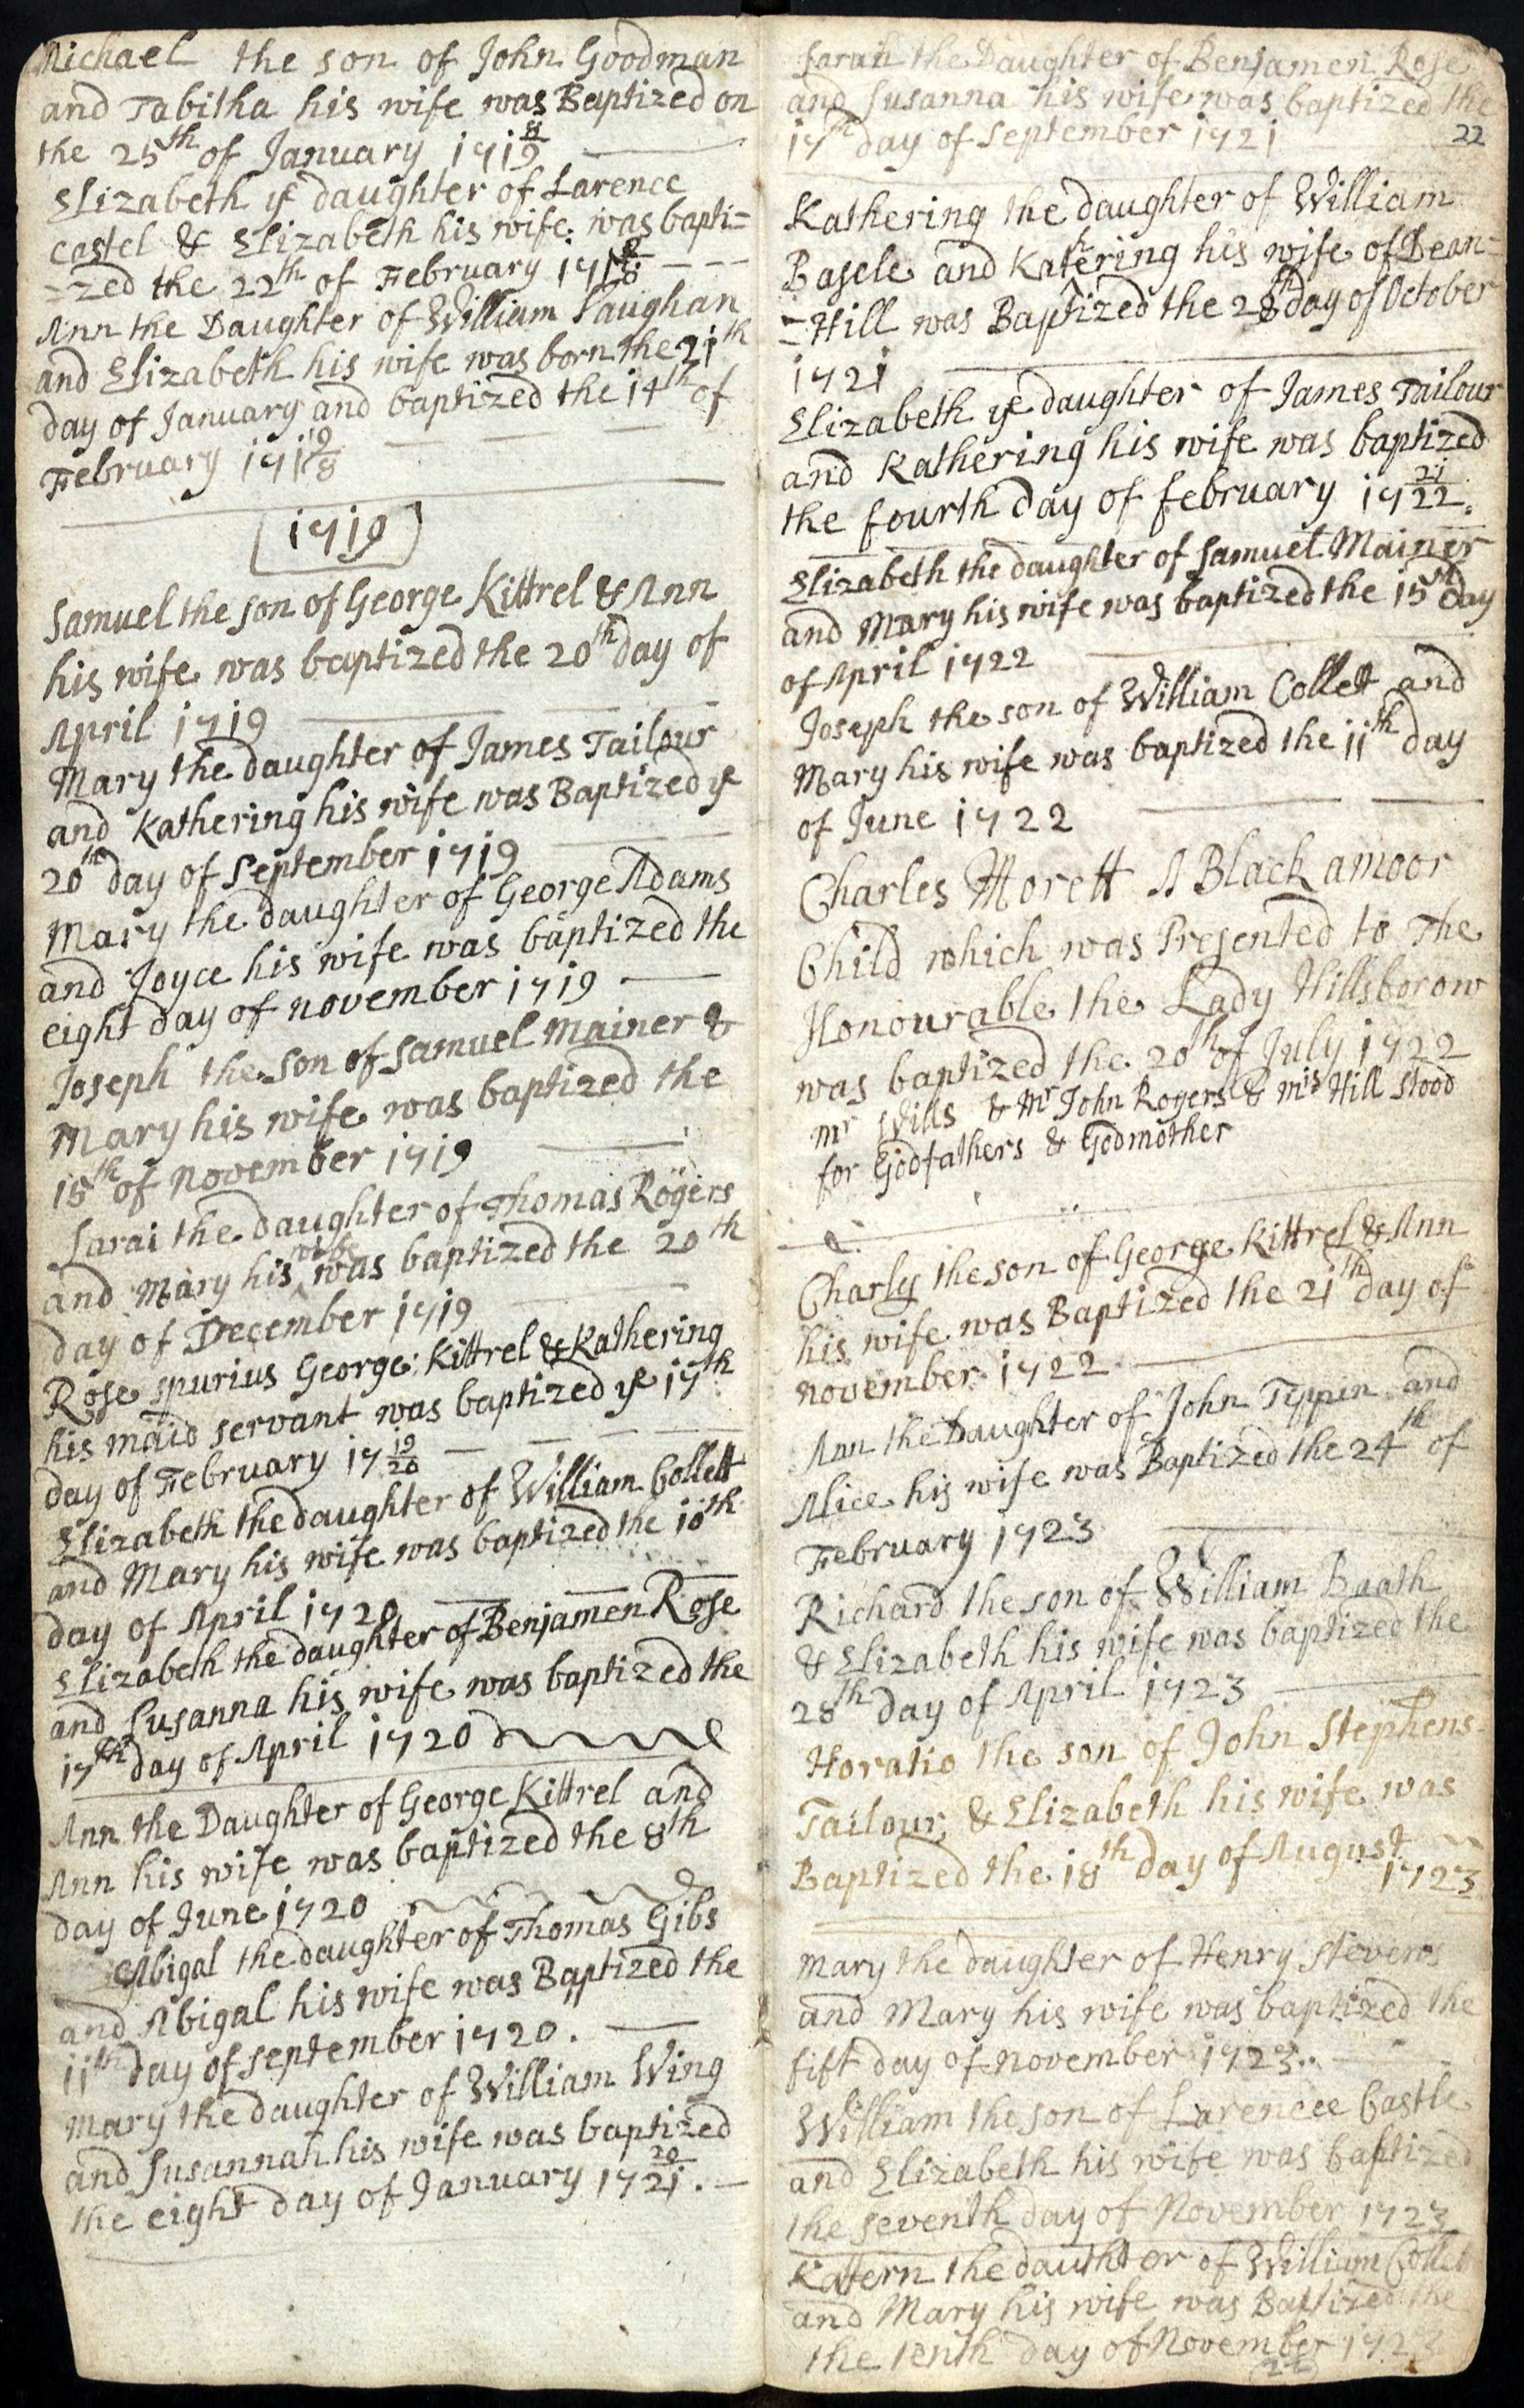 Michael the son of John Goodman
and Tabitha his wife was Baptized on
the 25th of January 171 8/9
Elizabeth ye daughter of Larence
Castel & Elizabeth his wife was bapti=
=zed the 22th of February 171
Ann the Daughter of William Vaughan
and Elizabeth his wife was born the 21th
day of January and baptized the 14th of
February 171 9/8
1719
Samuel the son of George Kittrel & Ann
his wife was baptized the 20th day of
April 1719
Mary the daughter of James Tailour
and Kathering his wife was Baptized ye
20th day of September 1719
Mary the daughter of George Adams
and Joyce his wife was baptized the
eight day of november 1719
Joseph the son of Samuel Mainer &
Mary his wife was baptized the
15th of november 1719
Sarai the daughter of Thomas Rogers
and Mary his wife was baptized the 20th
day of December 1719
Rose spurius George Kittrel & Kathering
his maid servant was baptized ye 17th
day of February 17 19/20
Elizabeth the daughter of William Collett
and Mary his wife was baptized the 10th
day of April 1720
Elizabeth the daughter of Benjamen Rose
and Susanna his wife was baptized the
17th day of April 1720
Ann the Daughter of George Kittrel and
Ann his wife was baptized the 8th
day of June 1720
Abigal the daughter of Thomas Gibs
and Abigal his wife was Baptized the
11th day of september 1720.
Mary the daughter of William Wing
and Susannah his wife was baptized
the eight day of January 17 20/21.
Sarah the Daughter of Benjamen Rose
and Susanna his wife was baptized the
17th day of September 1721
22
Kathering the daughter of William
Basele and Kathering his wife of Dean=
=Hill was Baptized the 28th day of October
1721
Elizabeth ye daughter of James Tailour
and Kathering his wife was baptized
the fourth day of february 17 21/22.
Elizabeth the daughter of Samuel Mainer
and Mary his wife was baptized the 15th day
of April 1722
Joseph the son of William Collet and
Mary his wife was baptized the 11th day
of June 1722
Charles Morett A Black amoor
Child which was Presented to The
Honourable the Lady Hillsborow
was baptized the 20th of July 1722
mr Wills & Mr John Rogers & mis Hill stood
for Godfathers & Godmother
Charly the son of George Kittrel & Ann
his wife was Baptized the 21th day of
november 1722
Ann the Daughter of John Tippin and
Alice his wife was Baptized the 24th of
February 1723
Richard the son of William Baath
& Elizabeth his wife was baptized the
28th day of April 1723
Horatio the son of John Stephens
Tailour, & Elizabeth his wife was
Baptized the 18th day of August
1723
Mary the daughter of Henry Stevens
and Mary his wife was baptized the
fift day of november 1723.
William the son of Larencee Castle
and Elizabeth his wife was baptized
the seventh day of November 1723
Katern the dauthter of William Collet
and Mary his wife was Baptized the
the tenth day of November 1723
22